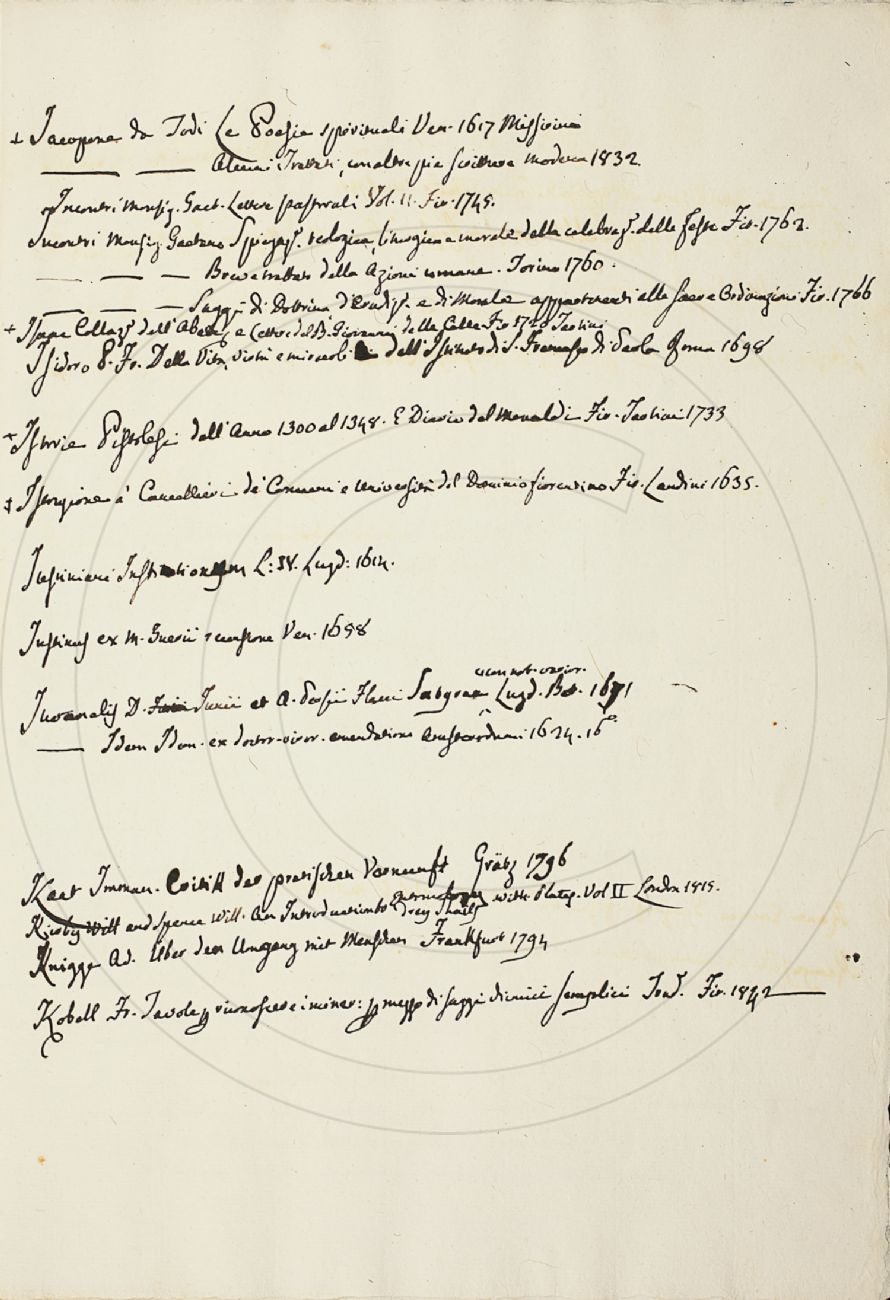 + Jacopone da Todi Le Poesie spirituali Ven. 1617 Misserini
——— ——— Alcuni Trattati, con altre pie scritture Modena 1832
Incontri Monsig. Gaet. Lettere pastorali Vol. II. Fir. 1745.
Incontri Monsig. Gaetano Spiegaz. teologica, liturgica e morale della celebraz. delle feste Fir. 1762.
— — — Breve trattato delle Azioni umane. Torino 1760.
— — — Saggi di Dottrina, d'Erudiz. e di Morale appartenenti alle sacre Ordinazioni Fir. 1766
+ Isaac Collaz. dell'Abate, e Lettere del B. Giovanni delle Celle Fir 1720 Tartini
Isidoro P. Fr. Della Vita, virtù e miracoli dell'Istituto di S. Francesco di Paola Roma 1698
+ Istorie Pistolesi dall'Anno 1300 al 1348. E Diario del Monaldi Fir. Tartini 1733
‡ Istruzione a' Cancellieri de' Comuni e Università del Dominio fiorentino Fir. Landini 1635.
Justiniani Institutionum L: IV. Lugd: 1614.
Justinus ex M. recensione Ven. 1658
Juvenalis D. Junii et A. Persii Flacci Satyrae cum not. varior. Lugd. Bat. 1671
——— Idem Idem. ex doctor. viror. emendatione Amsterdami 1624. 16°
Kant Imman. Critik der pratischen Vernunft Grätz 1796
Kirby Will and Spence Will. An Introduction to Entomology with Plates. Vol II London 1818.
Knigge Ad. Über den Umgang mit Menschen Frankfurt 1794
Kobell Fr. Tavole p riconoscere i miner: p mezzo di saggi chimici semplici Trad. Fir. 1842